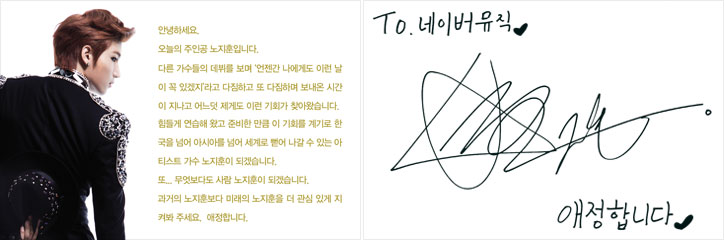 안녕하세요.
오늘의 주인공 노지훈입니다.
다른 가수들의 데뷔를 보며 '언젠간 나에게도 이런 날
이 꼭 있겠지'라고 다짐하고 또 다짐하며 보내온 시간
이 지나고 어느덧 제게도 이런 기회가 찾아왔습니다.
힘들게 연습해 왔고 준비한 만큼 이 기회를 계기로 한
국을 넘어 아시아를 넘어 세계로 뻗어 나갈 수 있는 아
티스트 가수 노지훈이 되겠습니다.
또... 무엇보다도 사람 노지훈이 되겠습니다.
과거의 노지훈보다 미래의 노지훈을 더 관심 있게 지
켜봐 주세요. 애정합니다.
To. 네이버뮤직♥
애정합니다♥